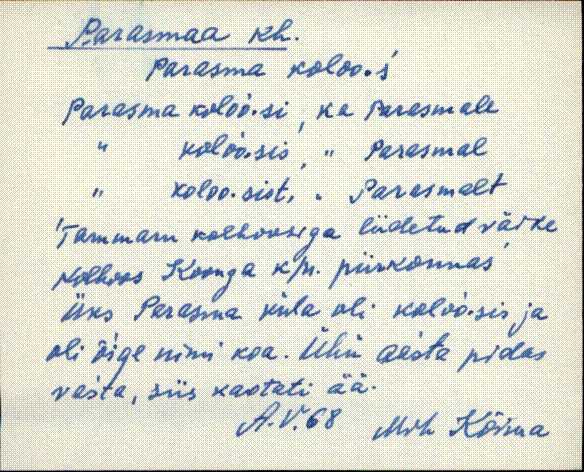 Parasmaa kh.
Parasma koloo.s'
Parasma koloo.si, ka Parasmale
" koloo.sis, " Parasmal
" koloo.sist, " Parasmalt
'Tammaru kolhoosiga liidetud väike
kolhoos Koonga k/n. piirkonnas'
Üks Parasma küla oli koloo.sis ja
oli õige nimi koa. Ühü aasta pidas
vasta, siis kaotati ää.
A.V. 68 Mih Kõima